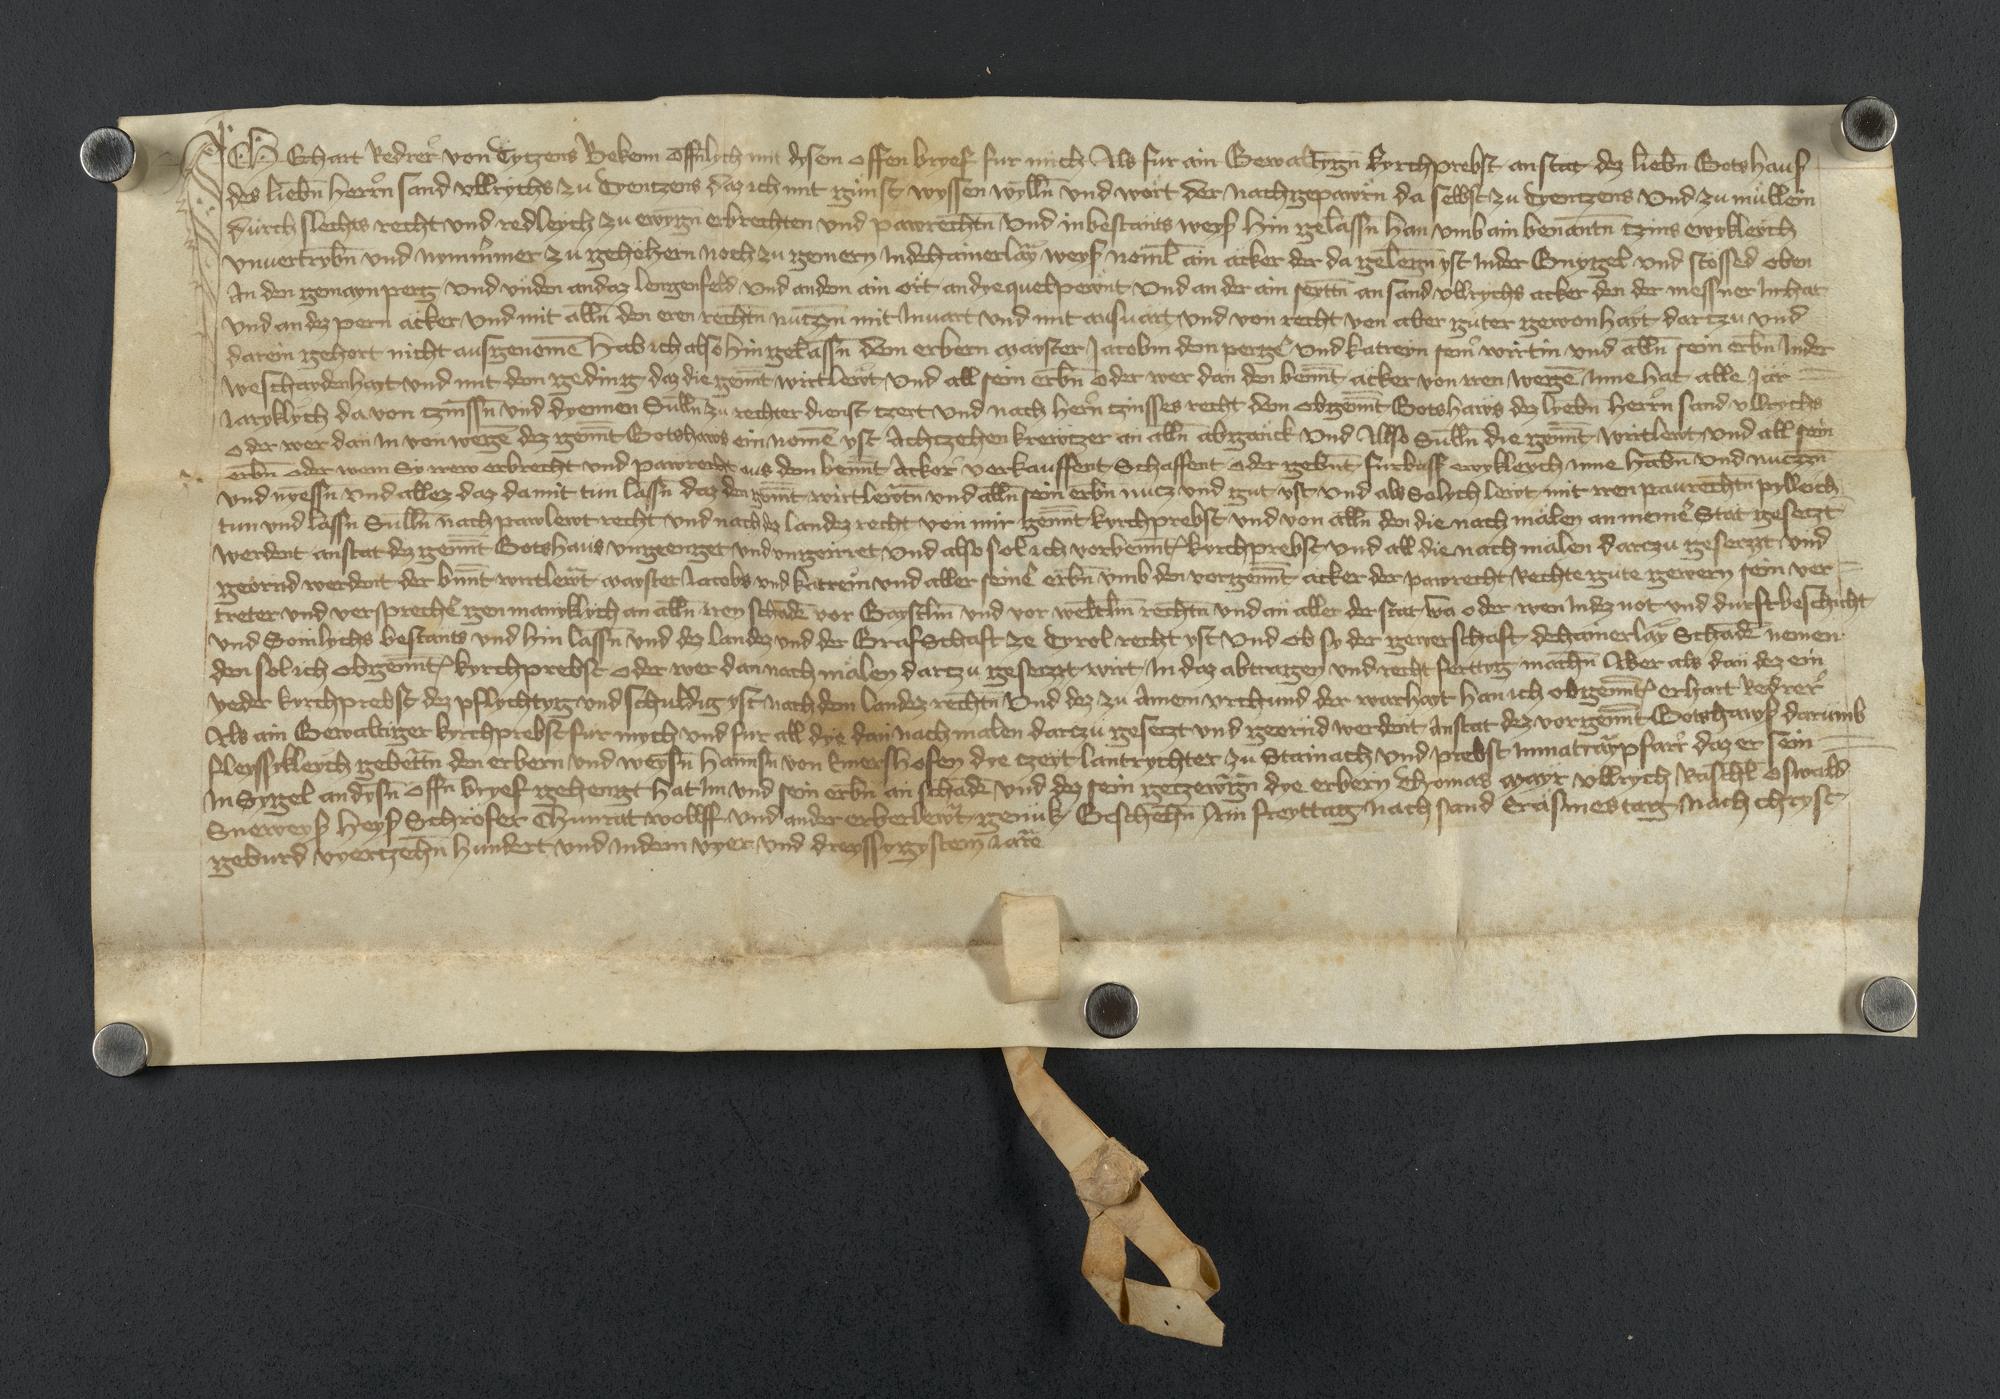 Ich Erhart Redrer von Tyzens Bekenn offnlych mit dysem offen bryef fur mich Als fur ain Gewaltygn kyrchprebst anstat dez liebn Gotshaus
des liebn herrn sand vllrychs zu Tyentzens daz ich mit gunst wyssen wylln und wort der nachgepawrn da selbst zu Tyentzens Und zu mullein
durch slechts recht und redleych zu ewygn erbrechten und pawrechtn Und in bestants weys hin gelassn han umb ain benantn tzins ewykleych
unvertrybn und nymmer zu gehehern noch zu gemern in dehainerlay weys noml ain acker der da gelegn yst in der Gnygel und stossed oben
An den gemayn perg Und unden an daz lengenfeld Und an dem ain ort an dye quelpewnt Und an der ain seyttn an sand vllrychs acker den der messner in hat
Und an dez pern acker Und mit alln den eren rechtn nutzn mit Invart und mit ausvart und von recht von alter guter gewonhayt dartzu und
darein gehort nicht ausgenome Hab ich also hin gelassn dem erbern mayster Jacobm dem perger Und katreyn seinr wirtin und alln sein erbn In der
weschaydenhayt und mit dem geding daz die gennt wirtlewt Und all sein erbn Oder wer dan den bennt acker von iren wegn Inne hat alle Jar
Jaryklych da von tzinssn und dyennen Sulln zu rechter dienst tzeit Und nach hern tzinsses recht dem obgennt Gotshaws dez lyebn herrn sand vllrychs
Oder wer dan in von wegn dez gennt Gotshaws ein nome yst Achtzehen krewtzer an alln abganck Und Allso Sulln die gennt wirtlewt Und all sein
erbn Oder wem Sy irew erbrecht und pawrecht aus dem bennt Acker verkauffent Schaffent Oder gebnt furbass ewykleych inne habn Und nutzn
Und nyessn Und allez daz da mit tun lassn daz den gennt wirtlewtn und alln sein erbn nutz und gut yst Und als Solych lewt mit iren paurechtn pylleich
tun und lassn Sulln nach pawlewt recht Und nach dez landez recht von mir gennt kyrchprebst Und von alln den die nach malen an meiner Stat gesetzt
werdent anstat dez gennt Gotshaus ungeenget und ungeirret Und also sol ich vorbennt kyrchprebst Und all die nach malen dartzu gesetzt Und
geornd werdent der bnnt wirtlewt mayster Jacobs und katrein und aller seiner erbn umb den vorgennt acker der pawrecht Rechte gute gewern sein ver
treter und versprecher gen manyklych an alln iren schadn vor Gaystlm und vor weltlm rechtn und an aller der stat wa Oder wen In dez not und durft beschicht
Und Soinlychs bestants und hin lassn und dez landez und der GrafSchaft ze Tyrol recht yst Und ob sy der gewerschaft dehainerlay Schadn nemen
den sol ich obgennt kyrchprebst Oder wer dan nach malen dartzu gesetzt wirt In daz abtragen und recht fertyg machn Aber als dan dez ein
yeder kyrchprebst dez pflychtyg und schuldig yst nach dem landez rechtn Und dez zu Amen urchund der warhayt Han ich obgennt erhart Redrer
Als ain Gewaltiger kyrchprebst fur mych und fur all dye dan nach malen dartzu gesetzt und geornd werdent Anstat dez vorgennt Gotshaws darumb
fleyssykleych gebettn den erbern und weysn hannsn von Emershofen dye tzeyt lantrychter zu Stainach Und prebst in matray pfarr daz er sein
In Sygel an dysn offn bryef gehengt hat im und sein erbn an schadn Und dez sein getzewgn dye erbern Thomas mayr Vllrych Raschl Oswald
Sneweys heys Schrofer Chunrat wollff und ander erber lewt genuk Geschehn Am freyttag nach sand Erasmes tag Nach chryst
geburd vyertzehn hundert und in dem vyer und dreyssygystem Jare